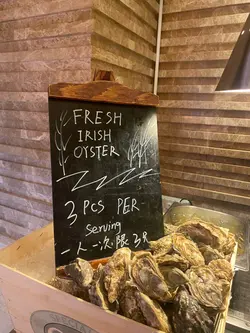 FRESH
IRISH
OYSTER
3 PCS PER
serving
一人一次限3只